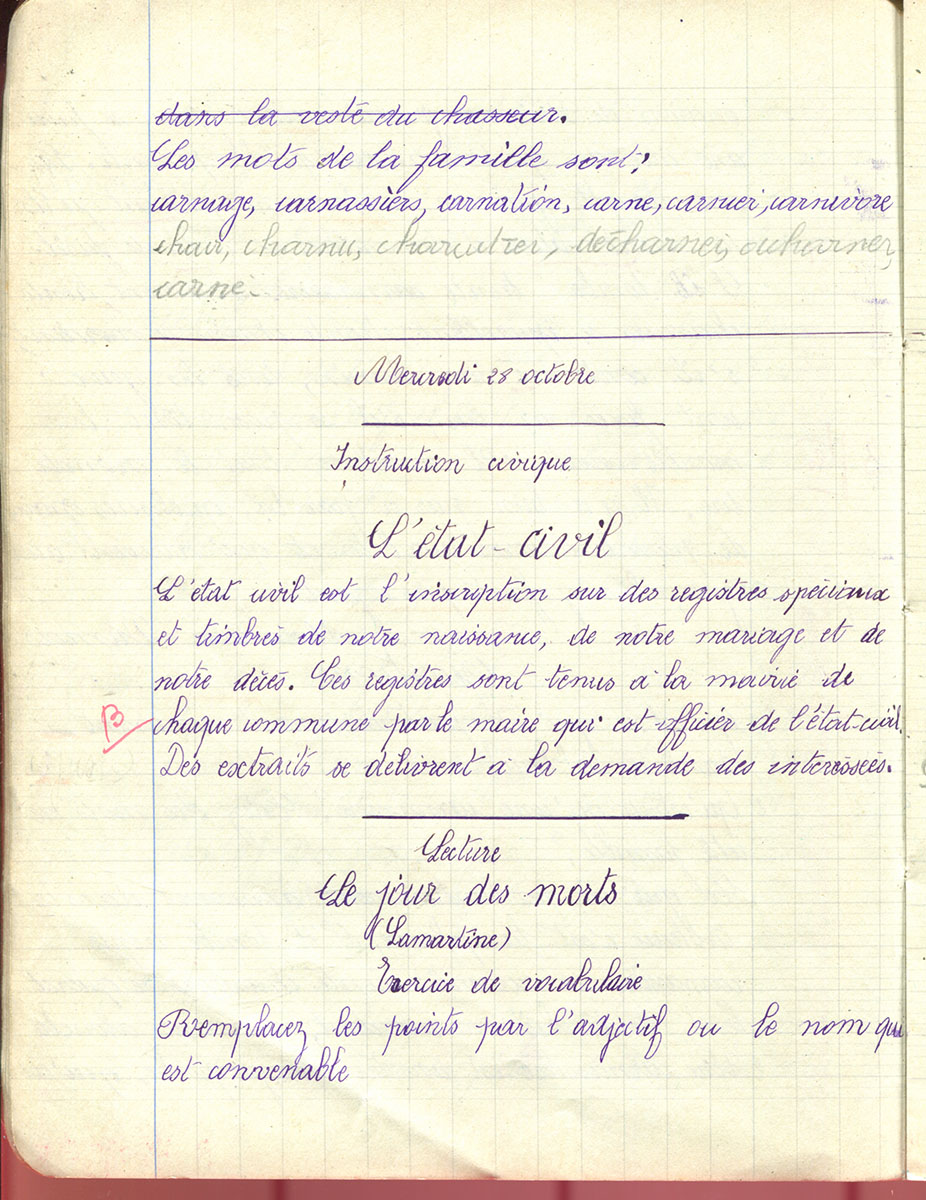 dans la veste du chasseur.
Les mots de la famille sont:
carnage, carnassiers, carnation, carne, carnier, carnivore
chair, charnu, charcutier, décharner, acharner,
carné.
Mercredi 28 octobre
Instruction civique
L'état-civil
L'état civil est l'inscription sur des registres spéciaux
et timbrés de notre naissance, de notre mariage et de
notre décès. Ces registres sont tenus à la mairie de
B
chaque commune par le maire qui est officier de l'état-civil.
Des extraits se délivrent à la demande des intéressés.
Lecture
Le jour des morts
(Lamartine)
Exercice de vocabulaire
Remplacez les points par l'adjectif ou le nom qui
est convenable